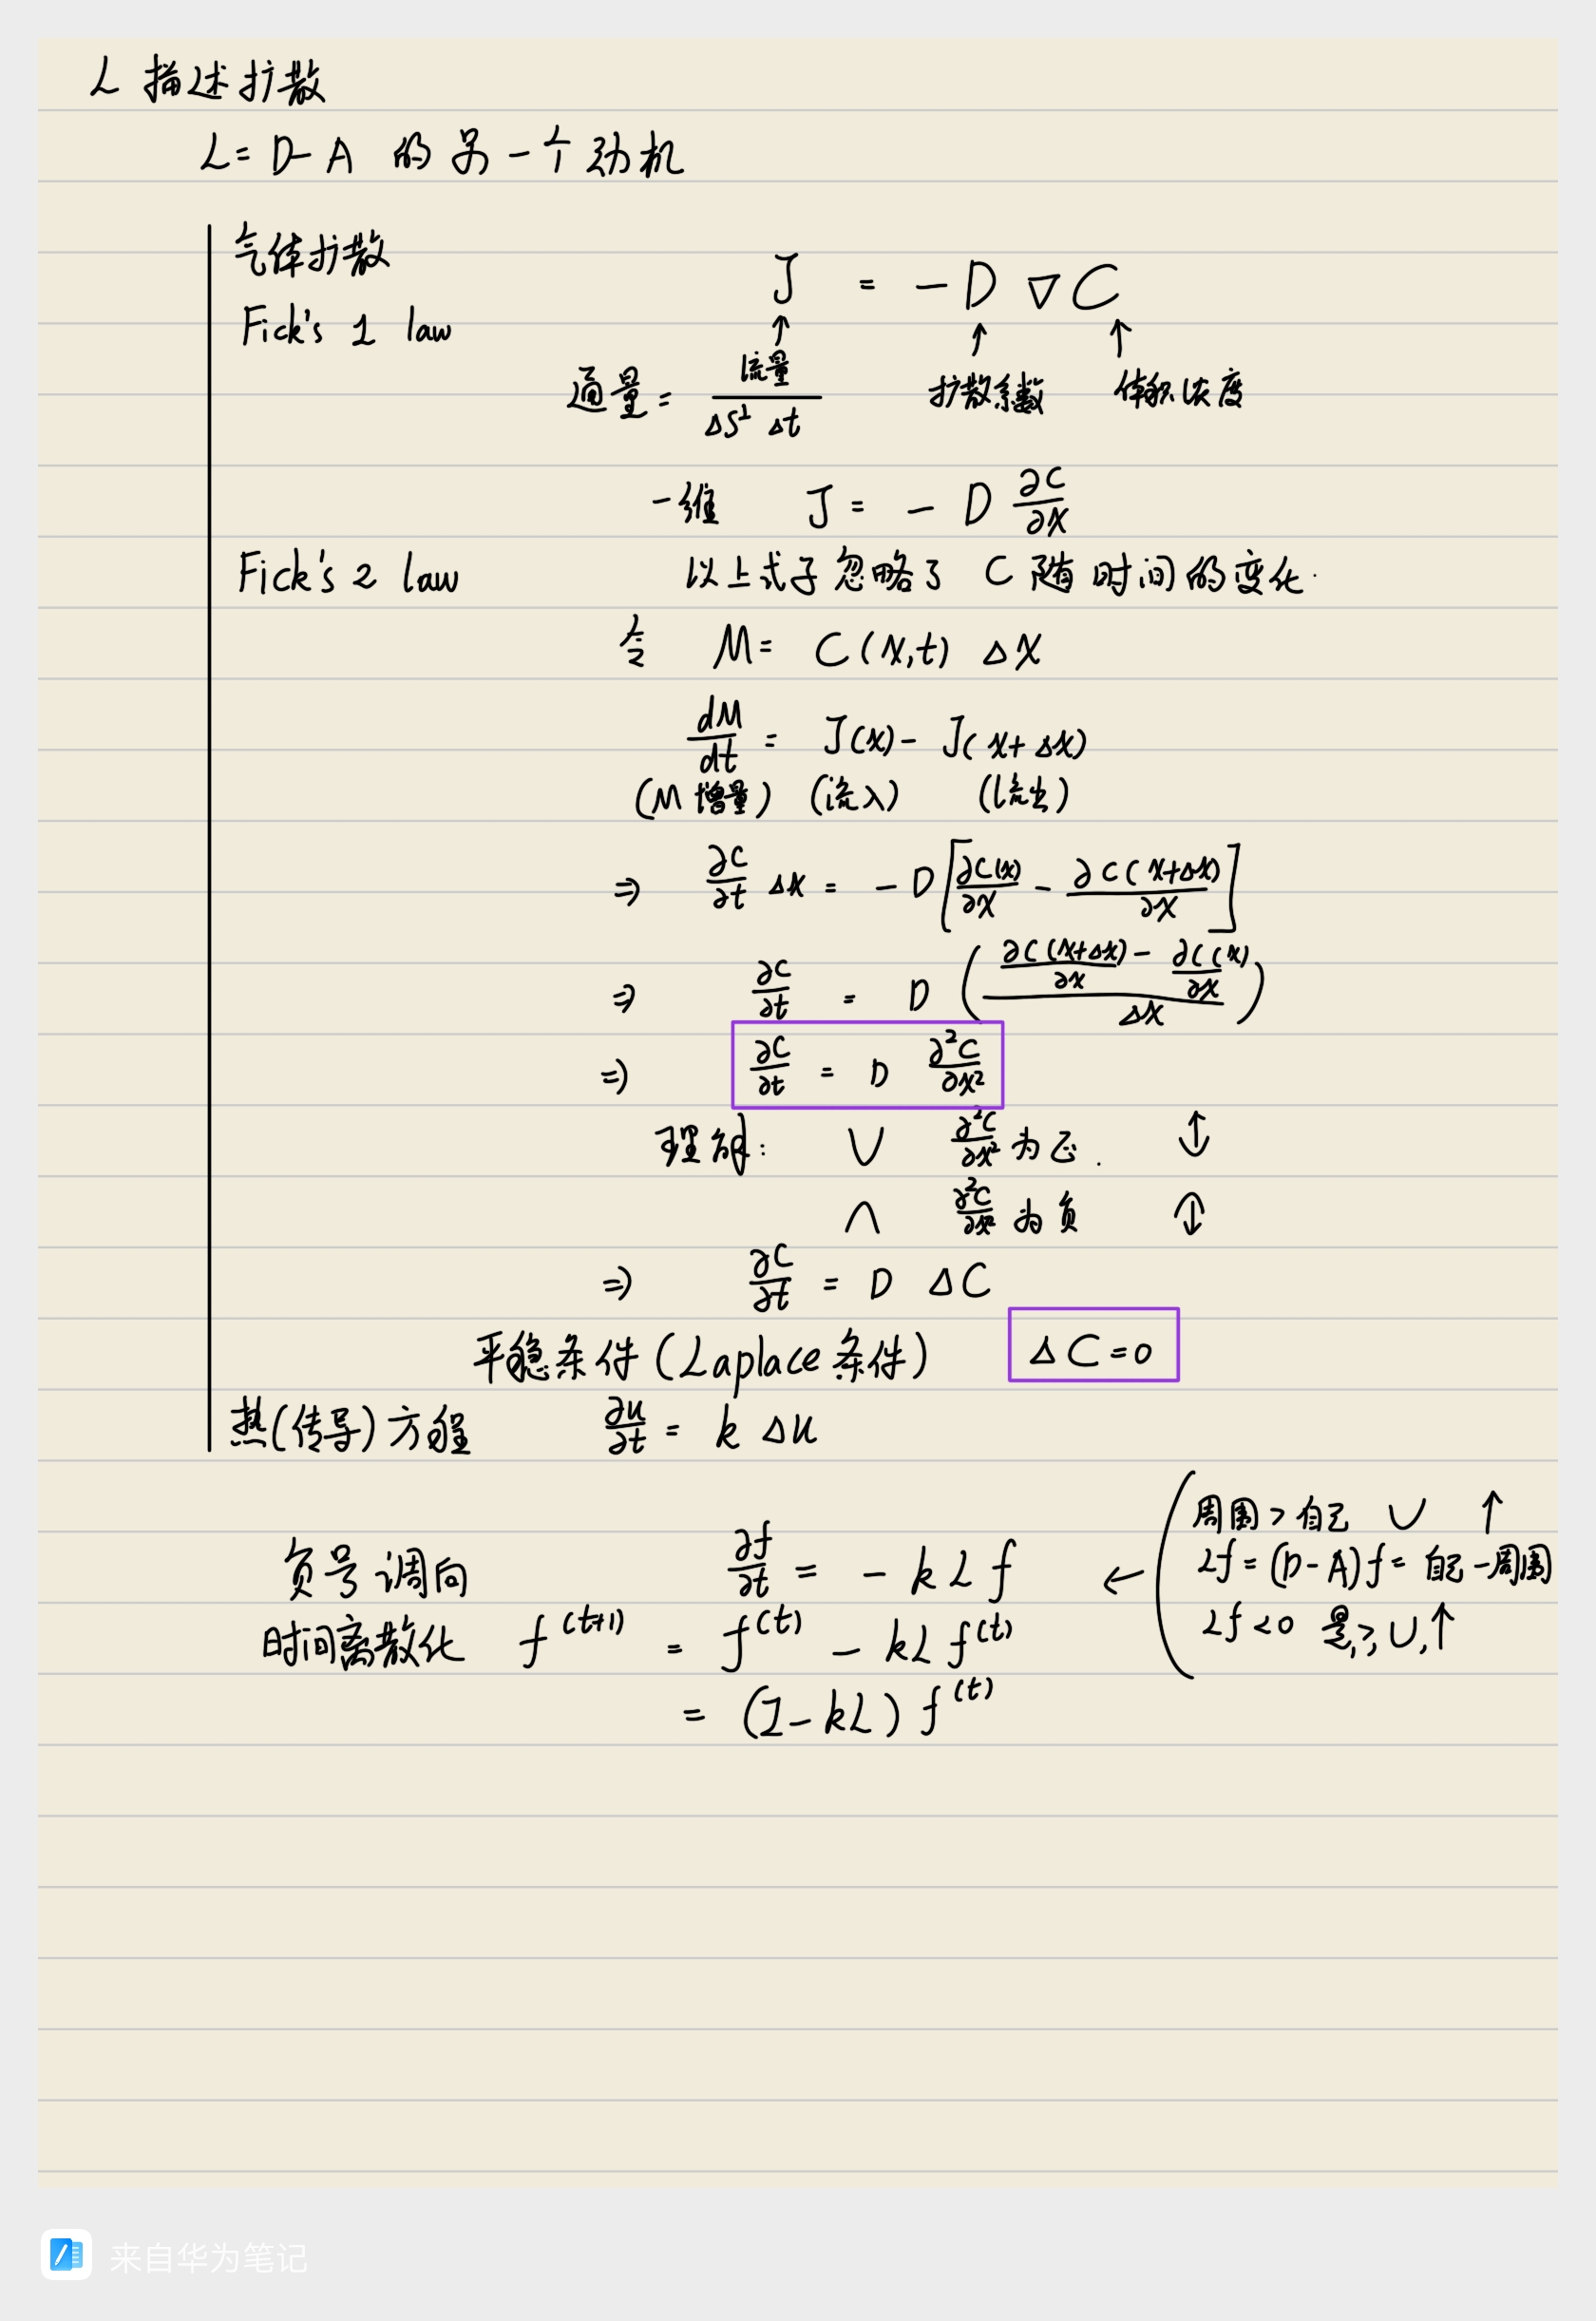 L 描述扩散
L = D-A 的另一个动机
气体扩散
J = -D ∇ C
Fick's 1 law
↑ ↑ ↑
通量 = 流量 / ΔS⊥ Δt 扩散系数 体积浓度
一维 J = - D ∂C/∂x
Fick's 2 law 以上式子忽略了 C 随时间的变化.
令 M = C(x,t) Δx
dM/dt = J(x) - J(x+Δx)
(M增量) (流入) (流出)
⇒ ∂C/∂t Δx = -D[∂C(x)/∂x - ∂C(x+Δx)/∂x]
⇒ ∂C/∂t = D ((∂C(x+Δx)/∂x - ∂C(x)/∂x)/Δx)
⇒ ∂C/∂t = D ∂²C/∂x²
理解: ∪ ∂²C/∂x² 为正. ↑
∩ ∂²C/∂x² 为负 ↓
⇒ ∂C/∂t = D ΔC
平稳条件(Laplace条件) ΔC=0
热(传导)方程 ∂u/∂t = k Δu
负号调向 ∂f/∂t = - k L f ←
周围 > 自己 ∪ ↑
Lf = (D-A)f = 自己-周围
Lf <0 是, >, ∪, ↑
时间离散化 f^(t+1) = f^(t) - kL f^(t)
= (I-kL) f^(t)
来自华为笔记